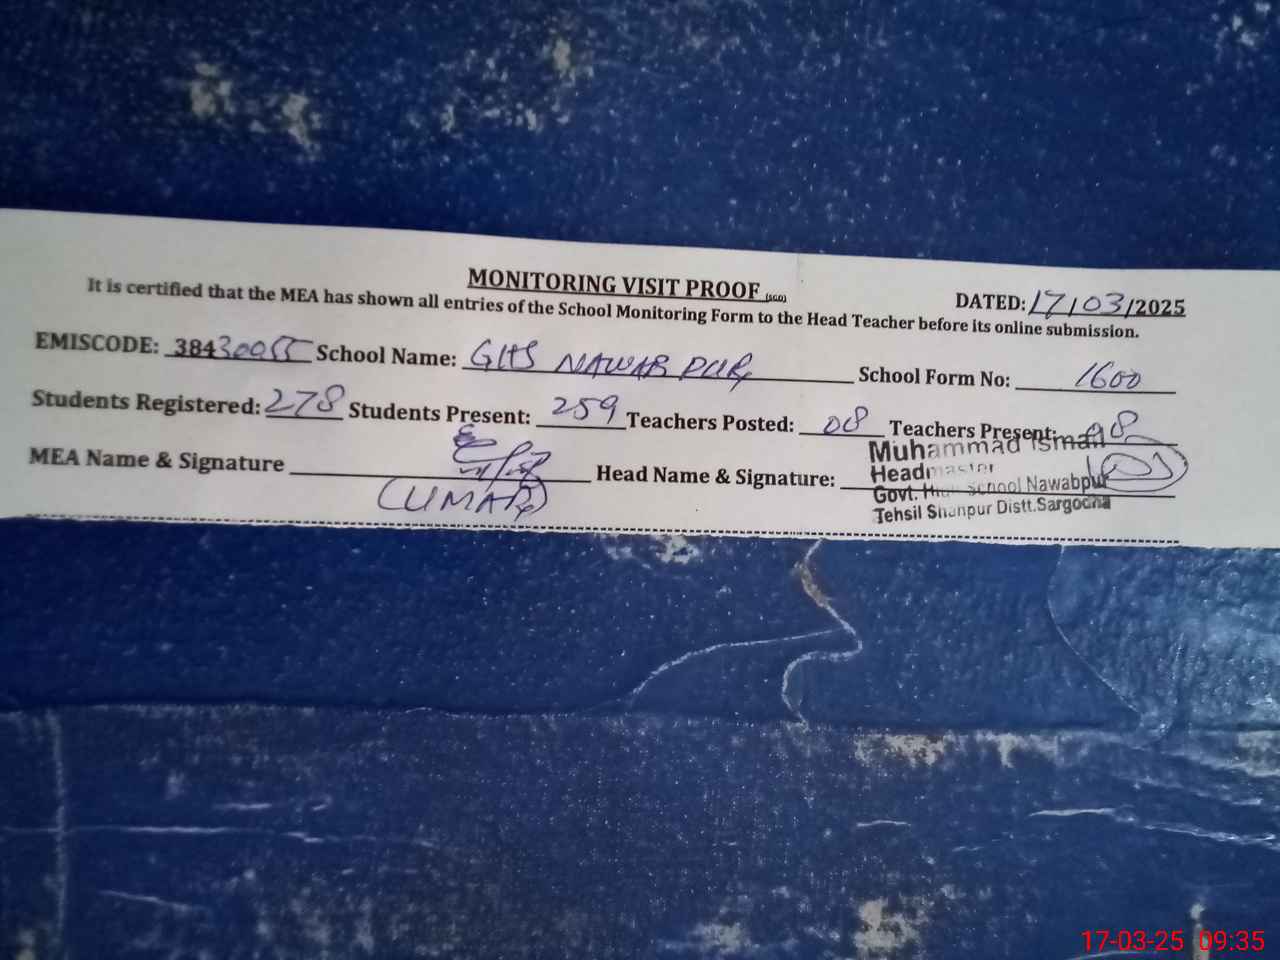 MONITORING VISIT PROOF (SGD)
DATED: 17/03/2025
It is certified that the MEA has shown all entries of the School Monitoring Form to the Head Teacher before its online submission.
EMISCODE: 38430055 School Name: GHS NAWAB PUR School Form No: 1600
Students Registered: 278 Students Present: 259 Teachers Posted: 08 Teachers Present: 08
MEA Name & Signature Head Name & Signature:
(UMAR)
Muhammad Ismail
Headmaster
Govt. High School Nawabpur
Tehsil Shahpur Distt.Sargodha
17-03-25 09:35